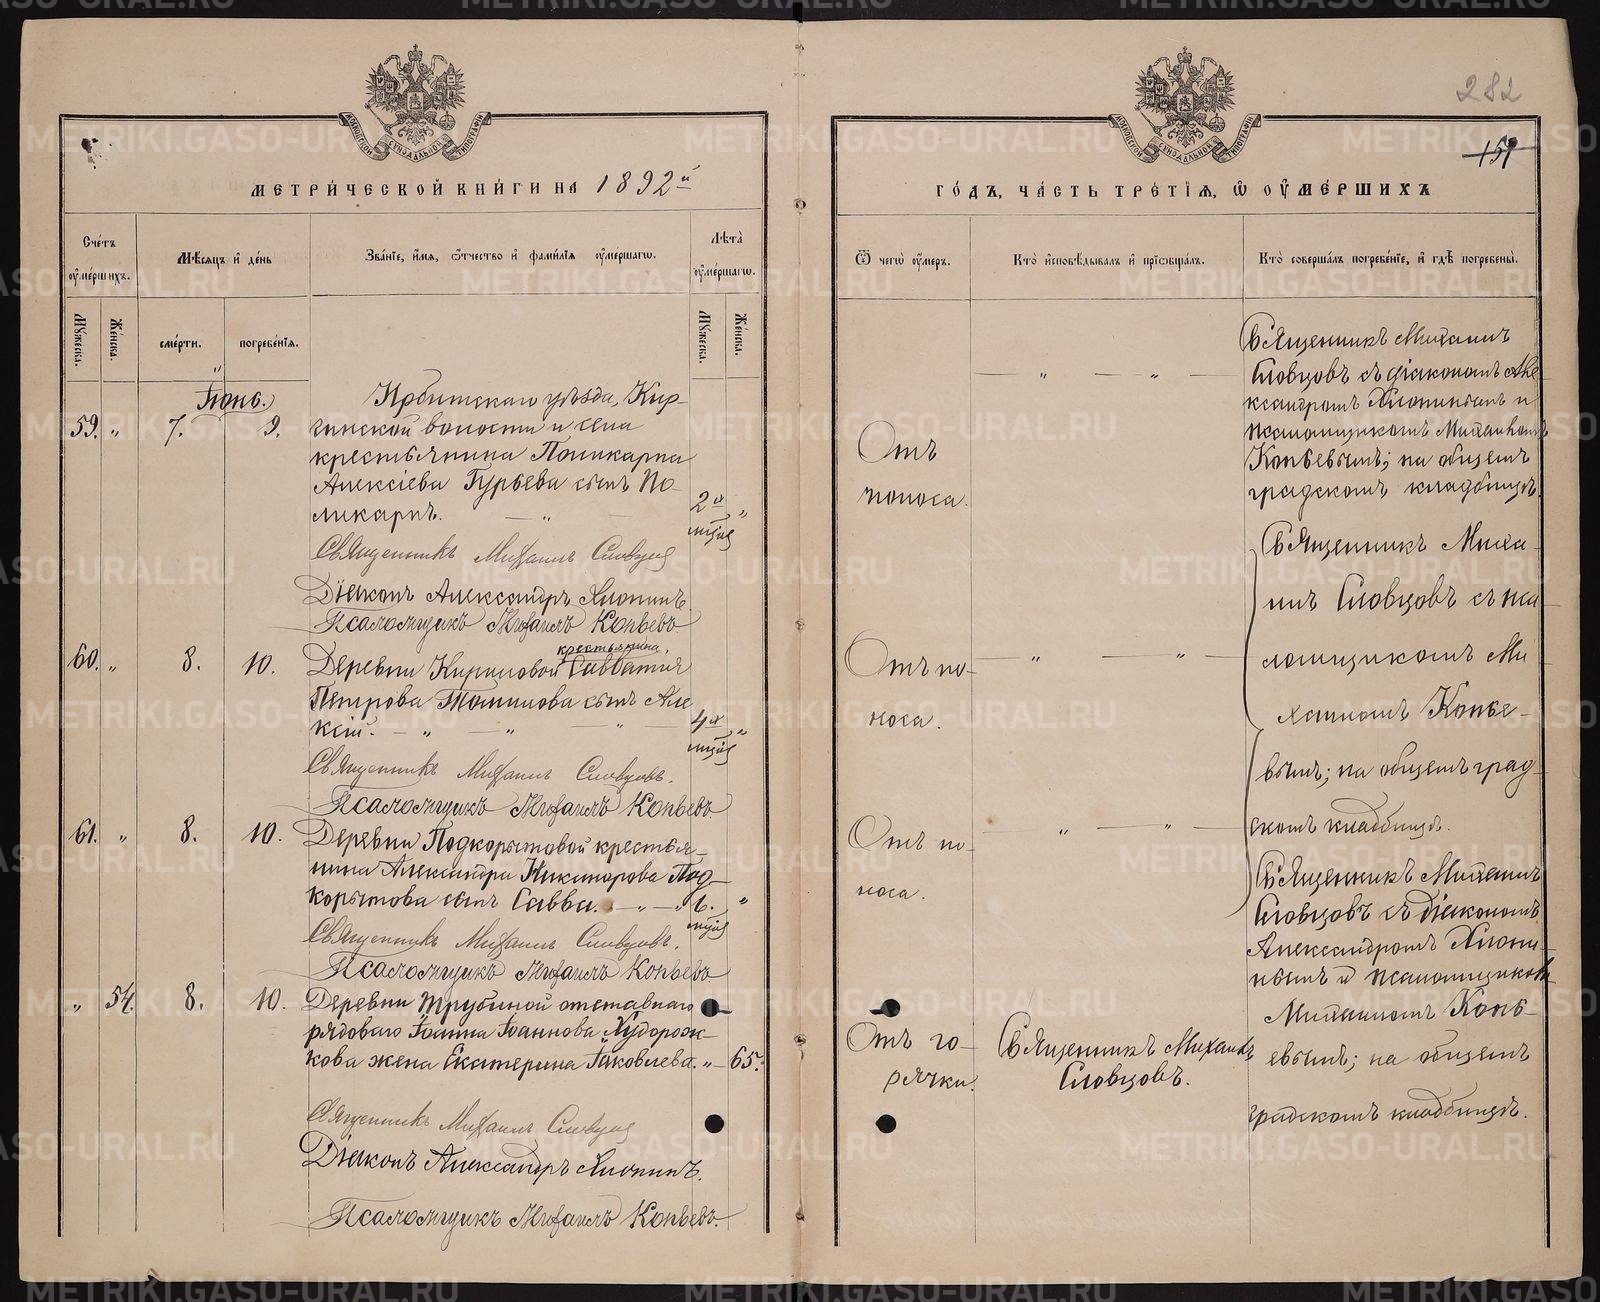 МЕТРИЧЕСКОЙ КНИГИ НА 1892й
Счетъ умершихъ.
Мѣсяцъ и день
Званіе, имя, отчество и фамилія умершаго.
Лѣта умершаго.
Мужеска.
Женска.
смерти.
погребенія.
Мужеска.
Женска.
Іюнь.
59. " 7. 9.
Ирбитскаго уѣзда, Кир-
гинской волости и села
крестьянина Поликарпа
Алексіева Гурьева сынъ По-
ликарпъ. — " —
2х мцвъ "
Священникъ Михаилъ Словцовъ
Діаконъ Александръ Хлопинъ
Псаломщикъ Михаилъ Копьевъ
60. " 8. 10.
крестьянина
Деревни Кириловой Савватія
Петрова Томилова сынъ Але
ксій. — " — " — " —
4х мцвъ "
Священникъ Михаилъ Словцовъ.
Псаломщикъ Михаилъ Копьевъ
61. " 8. 10.
Деревни Подкорытовой крестья-
нина Александра Никанорова Под-
корытова сынъ Савва. — " — " 1. "
мцвъ
Священникъ Михаилъ Словцовъ.
Псаломщикъ Михаилъ Копьевъ
" 54. 8. 10.
Деревни Трубиной отставнаго
рядоваго Іоанна Іоаннова Худорож-
кова жена Екатерина Іаковлева. " — 65.
Священникъ Михаилъ Словцовъ
Діаконъ Александръ Хлопинъ.
Псаломщикъ Михаилъ Копьевъ.
282
151
ГОДЪ, ЧАСТЬ ТРЕТІЯ, Ѡ ОУМЕРШИХЪ
Ѿ чегѡ умеръ.
Кто исповѣдывалъ и пріобщалъ.
Кто совершалъ погребеніе, и гдѣ погребены.
Отъ
поноса.
— " — " —
Священникъ Михаилъ
Словцовъ съ діакономъ Але
ксандромъ Хлопинымъ и
псаломщикомъ Михаиломъ
Копьевымъ; на общемъ
градскомъ кладбищѣ.
Отъ по-
носа.
— " — " —
Священникъ Миха-
илъ Словцовъ съ пса-
ломщикомъ Ми
хаиломъ Копье-
вымъ; на общемъ град
скомъ кладбищѣ.
Отъ по-
носа.
— " — " —
Отъ го-
рячки.
Священникъ Михаилъ
Словцовъ.
Священникъ Михаилъ
Словцовъ съ діакономъ
Александромъ Хлопи-
нымъ и псаломщикомъ
Михаиломъ Копь-
евымъ; на общемъ
градскомъ кладбищѣ.
METRIKI.GASO-URAL.RU